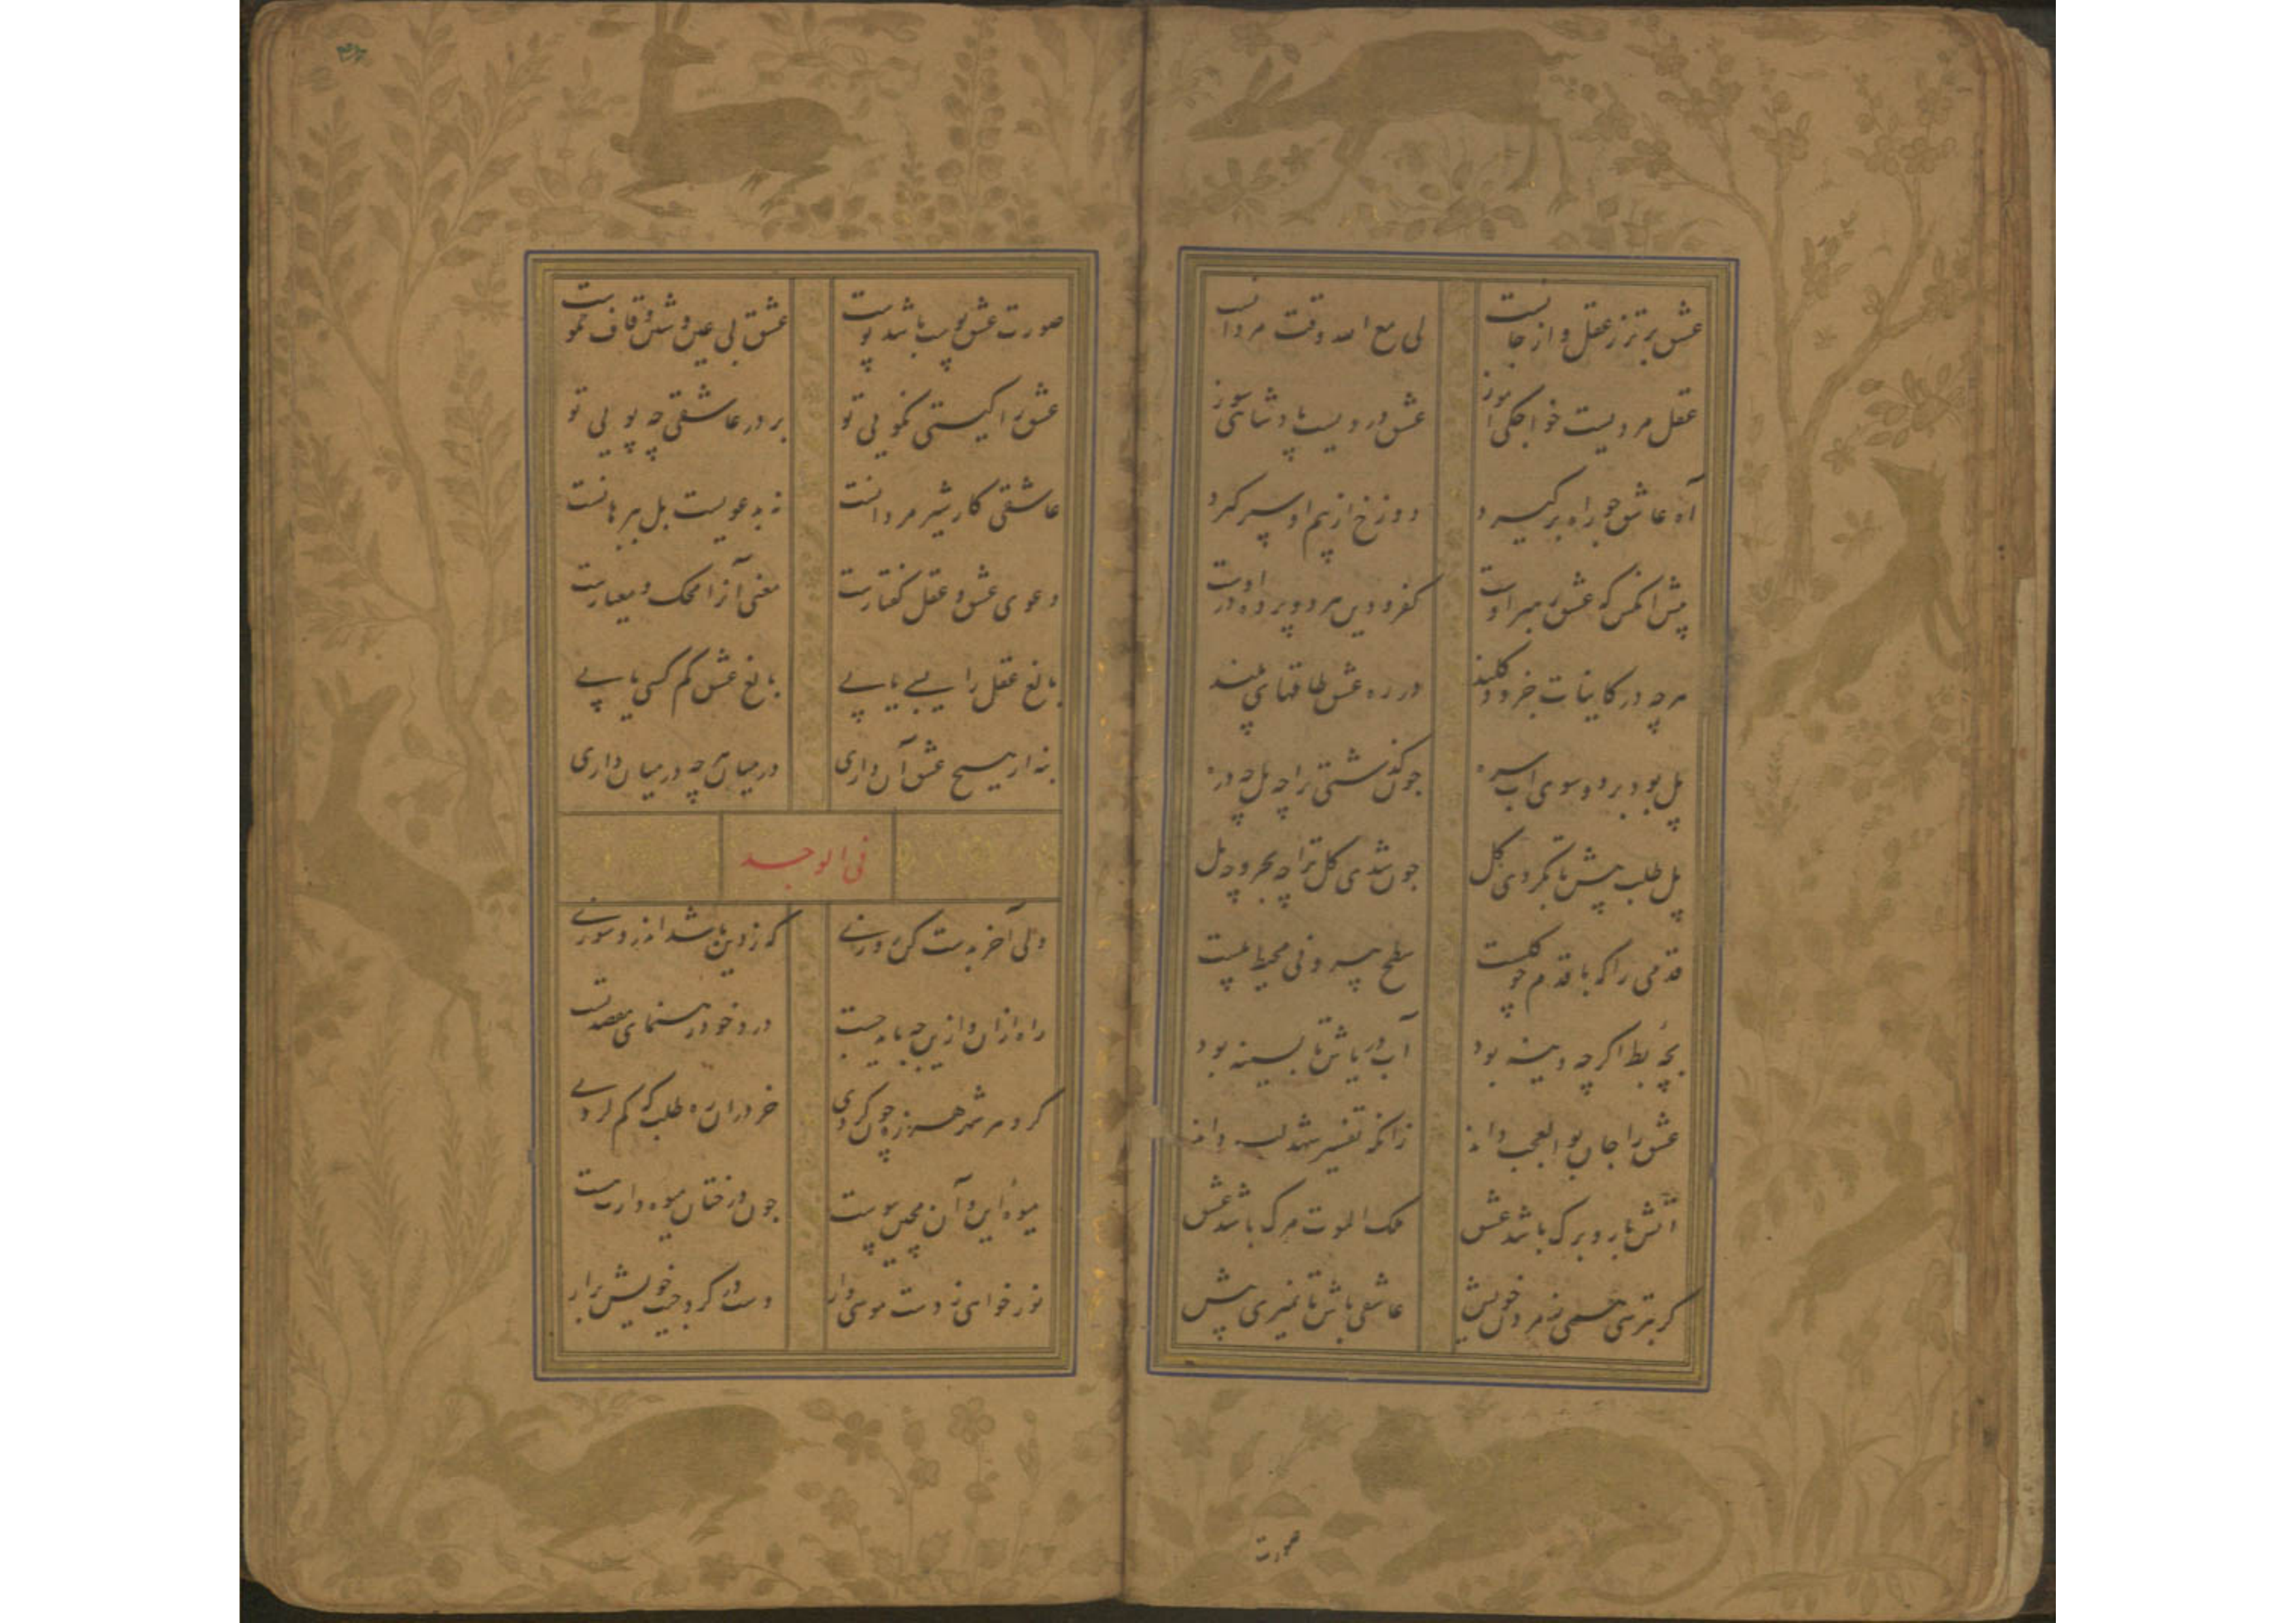 عشق برتر ز عقل و از جانست لی مع الله وقت مردانست
عقل مردیست خواجکی آموز عشق دردیست پادشاهی سوز
آه عاشق چو راه برکیرد دوزخ از بیم او سپر کیرد
پیش آنکس که عشق رهبر اوست کفر و دین هر دو پرده در اوست
هرچه در کاینات جزو و کلند در ره عشق طاقهای پلند
پل بود بر دو سوی آب سره چون کذشتی ترا چه پل چه دره
پل طلب پیش تا نکردی کل چون شدی کل ترا چه بحر و چه پل
قدمی را که با قدم چو یکیست سطح بیرونی محیط پلیست
بچه بط اکر چه دینه بود آب دریاش تا بسینه بود
عشق را جان بوالعجب داند زانکه تفسیر شهد لب داند
آتش بار و برک باشد عشق ملک الموت مرک باشد عشق
کر بترسی همی ز مردن خویش عاشقی باش تا نمیری پیش
صورت
صورت عشق پوست باشد پوست عشق بی عین و شین و قاف نکوست
عشق را کیستی نکویی تو بر در عاشقی چه پویی تو
عاشقی کار شیر مردانست نه بدعویست بل ببرهانست
دعوی عشق و عقل کفتارست معنی آنرا محک و معیارست
بالغ عقل را بسی یابی بالغ عشق کم کسی یابی
نه ار هیچ عشق آن داری در میان هر چه در میان داری
فی الوجد
دلی آخر بدست کن روزی که ز دین باشد اندرو سوزی
راه ازان و ازین چه باید جست درد خود رهنمای مقصد تست
کرد هر شهر هرزه چون کردی خر دران ره طلب که کم کردی
میوه این و آن مچین پیوست چون درختان میوه دارت هست
نور خواهی ز دست موسی وار دست در کرد جیب خویش برار